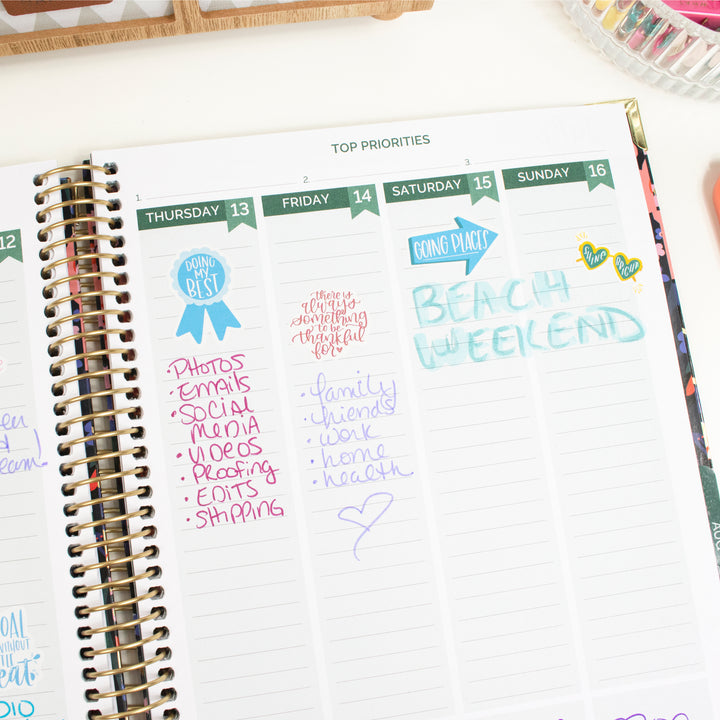 TOP PRIORITIES
1.
2.
3.
12
THURSDAY 13
FRIDAY 14
SATURDAY 15
SUNDAY 16
DOING
MY
BEST
·PHOTOS
·EMAILS
·SOCIAL
MEDIA
·VIDEOS
·Proofing
·EDITS
·SHIPPING
there is
always
something
to be
thankful
for
·family
·friends
·work
·home
·health
GOING PLACES
BEACH
WEEKEND